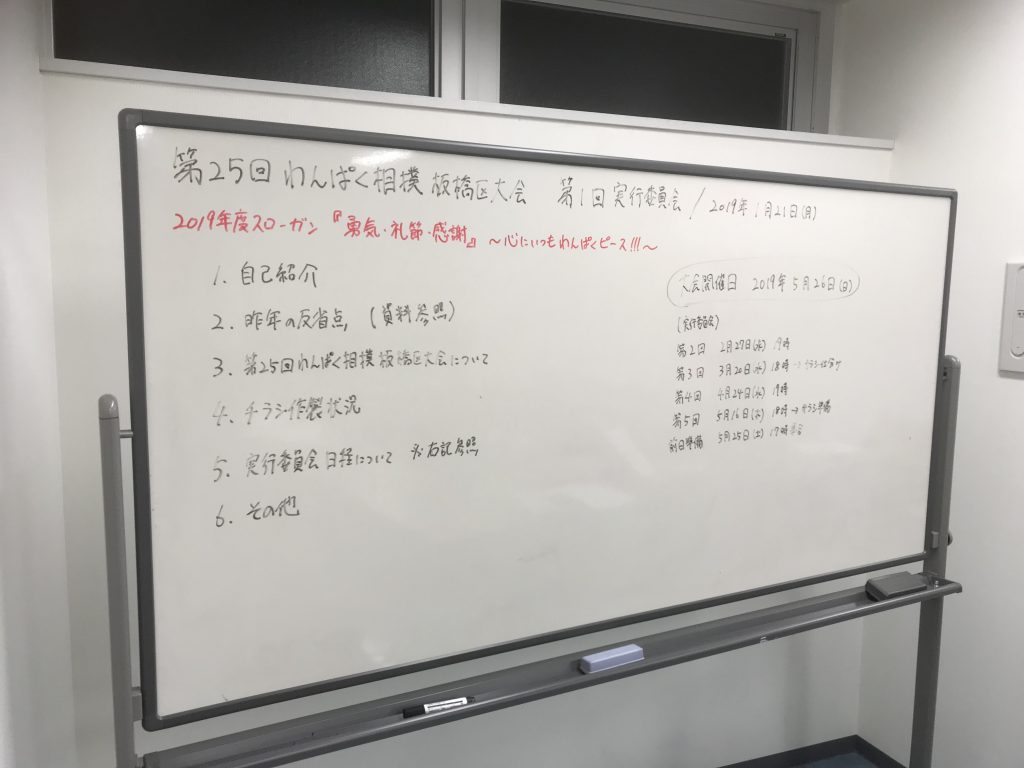 第25回 わんぱく相撲 板橋区大会 第1回 実行委員会 / 2019年1月21日(月)
2019年度スローガン 『勇気・礼節・感謝』 〜心にいつもわんぱくピース!!!〜
1. 自己紹介
2. 昨年の反省点 (資料参照)
3. 第25回わんぱく相撲 板橋区大会について
4. チラシ作製状況
5. 実行委員会日程について ※右記参照
6. その他
大会開催日 2019年5月26日(日)
(実行委員会)
第2回 2月27日(水) 19時
第3回 3月20日(水) 18時 → チラシ仕分け
第4回 4月24日(水) 19時
第5回 5月16日(木) 18時 →
前日準備 5月25日(土) 17時集合